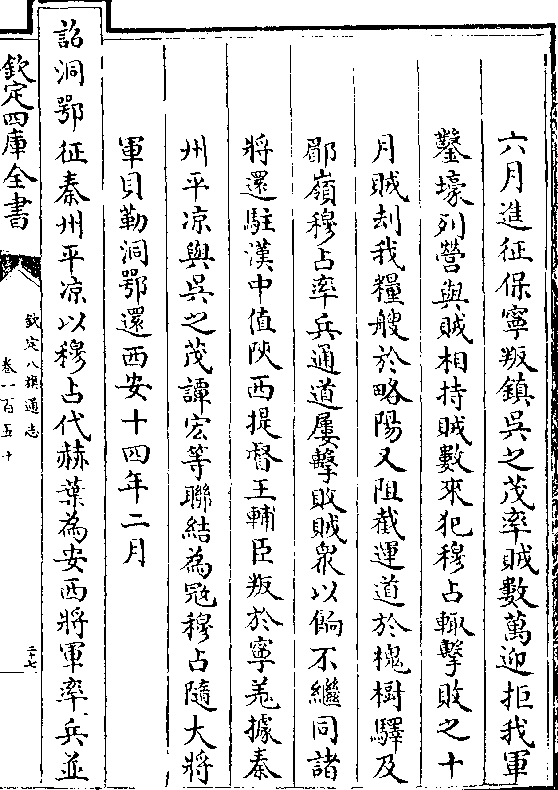 六月進征保寧叛鎮吳之茂率賊數萬迎拒我軍
鑿壕列營與賊相持賊數來犯穆占輒擊敗之十
月賊刦我糧艘於略陽又阻截運道於槐樹驛及
鄏嶺穆占率兵通道屢擊敗賊衆以餉不繼同諸
將還駐漢中值陝西提督王輔臣叛於寧羌據秦
州平凉與吳之茂譚宏等聯結為冦穆占隨大將
軍貝勒洞鄂還西安十四年二月
詔洞鄂征秦州平凉以穆占代赫葉為安西將軍率兵並
欽定四庫全書
欽定八旗通志
卷一百五十
二七